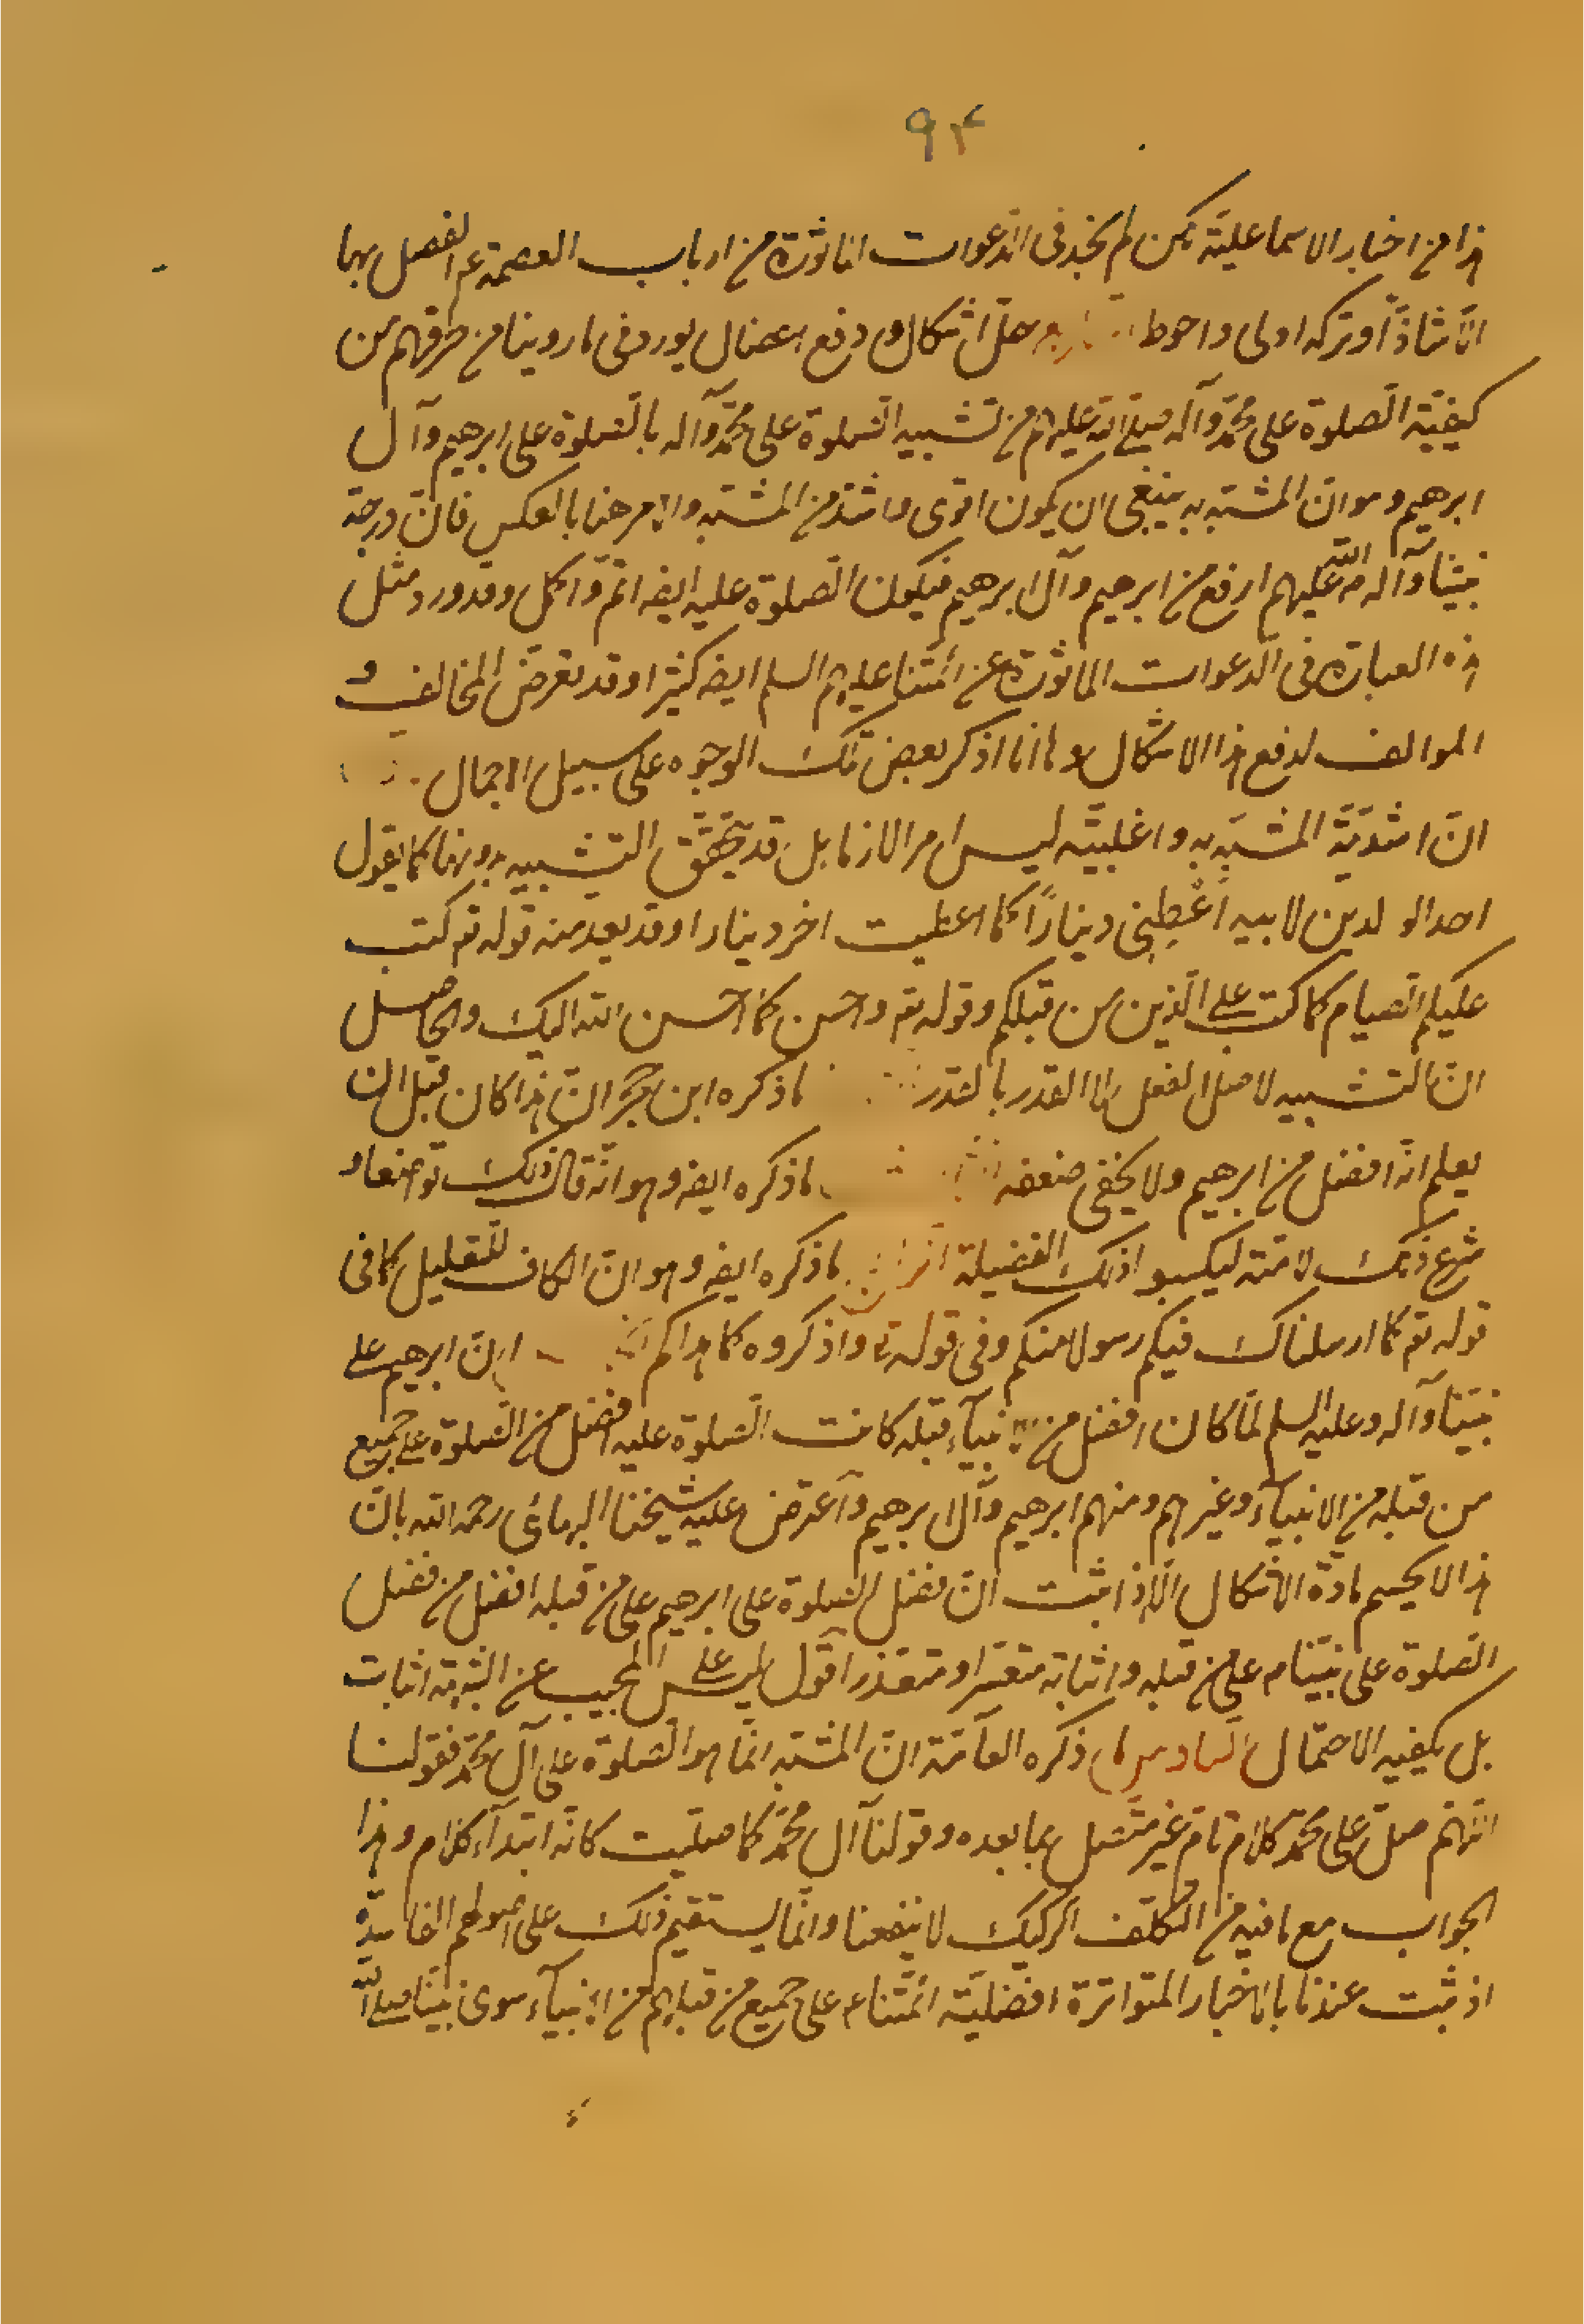 ٩٤
هذا من اخبار الاسماعلية لكن لم نجد فى الدعوات الماثورة من ارباب العصمة عم الفصل بها
الا شاذا وتركه اولى واحوط حل اشكال ودفع اعضال يورد فى ما روينا من طرقهم من
كيفية الصلوة على محمد وآله صلى الله عليهم من تشبيه الصلوة على محمد وآله بالصلوة على ابرهيم وآل
ابرهيم وهو ان المشبه به ينبغى ان يكون اقوى واشد من المشبه والامر هنا بالعكس فان درجة
نبينا وآله ص الله عليهم ارفع من ابرهيم وآل ابرهيم فيكون الصلوة عليه ايضا اتم واكمل وقد ورد مثل
هذه العبارة فى الدعوات الماثورة عن ائمتنا عليهم السلم ايضا كثيرا وقد تعرض المخالف و
الموالف لدفع هذا الاشكال وها انا اذكر بعض تلك الوجوه على سبيل الاجمال
ان اشدية المشبه به واغلبيته ليس امرا لازما بل قد يتحقق التشبيه بدونها كما يقول
احد الولدين لابيه اعطنى دينارا كما اعطيت اخر دينارا وقد يعد منه قوله تم كتب
عليكم الصيام كما كتب على الذين من قبلكم وقوله تم واحسن كما احسن الله اليك والحاصل
ان التشبيه لاصل الفعل لا القدر بالقدر ما ذكره ابن حجر ان هذا كان قبل ان
يعلم انه افضل من ابرهيم ولا يخفى ضعفه ما ذكره ايضا وهو انه قال ذلك تواضعا و
شرع ذلك لامته ليكسبوا ذلك الفضيلة ما ذكره ايضا وهو ان الكاف للتعليل كما فى
قوله تم كما ارسلناك فيكم رسولا منكم وفى قوله تع واذكروه كما هداكم ان ابرهيم على
نبينا وآله وعليه السلم لما كان افضل من الانبياء قبله كانت الصلوة عليه افضل من الصلوة على جميع
من قبله من الانبياء وغيرهم ومنهم ابرهيم وآل ابرهيم واعترض عليه شيخنا البهائى رحمه الله بان
هذا لا يحسم مادة الاشكال الا اذا ثبت ان فضل الصلوة على ابرهيم على من قبله افضل من فضل
الصلوة على نبينا م على من قبله واثباته متعسر او متعذر اقول ليس على المجيب عن الشبهة اثبات
بل يكفيه الاحتمال السادس ما ذكره العامة ان المشبه انما هو الصلوة على آل محمد فقولنا
اللهم صل على محمد كلام تام غير متصل بما بعده وقولنا وآل محمد كما صليت كانه ابتداء كلام وهذا
الجواب مع ما فيه من التكلف الركيك لا ينفعنا وانما يستقيم ذلك على اصولهم الفاسدة
اذ ثبت عندنا بالاخبار المتواترة افضلية ائمتنا ع على جميع من قبلهم من الانبياء سوى نبينا صلى الله